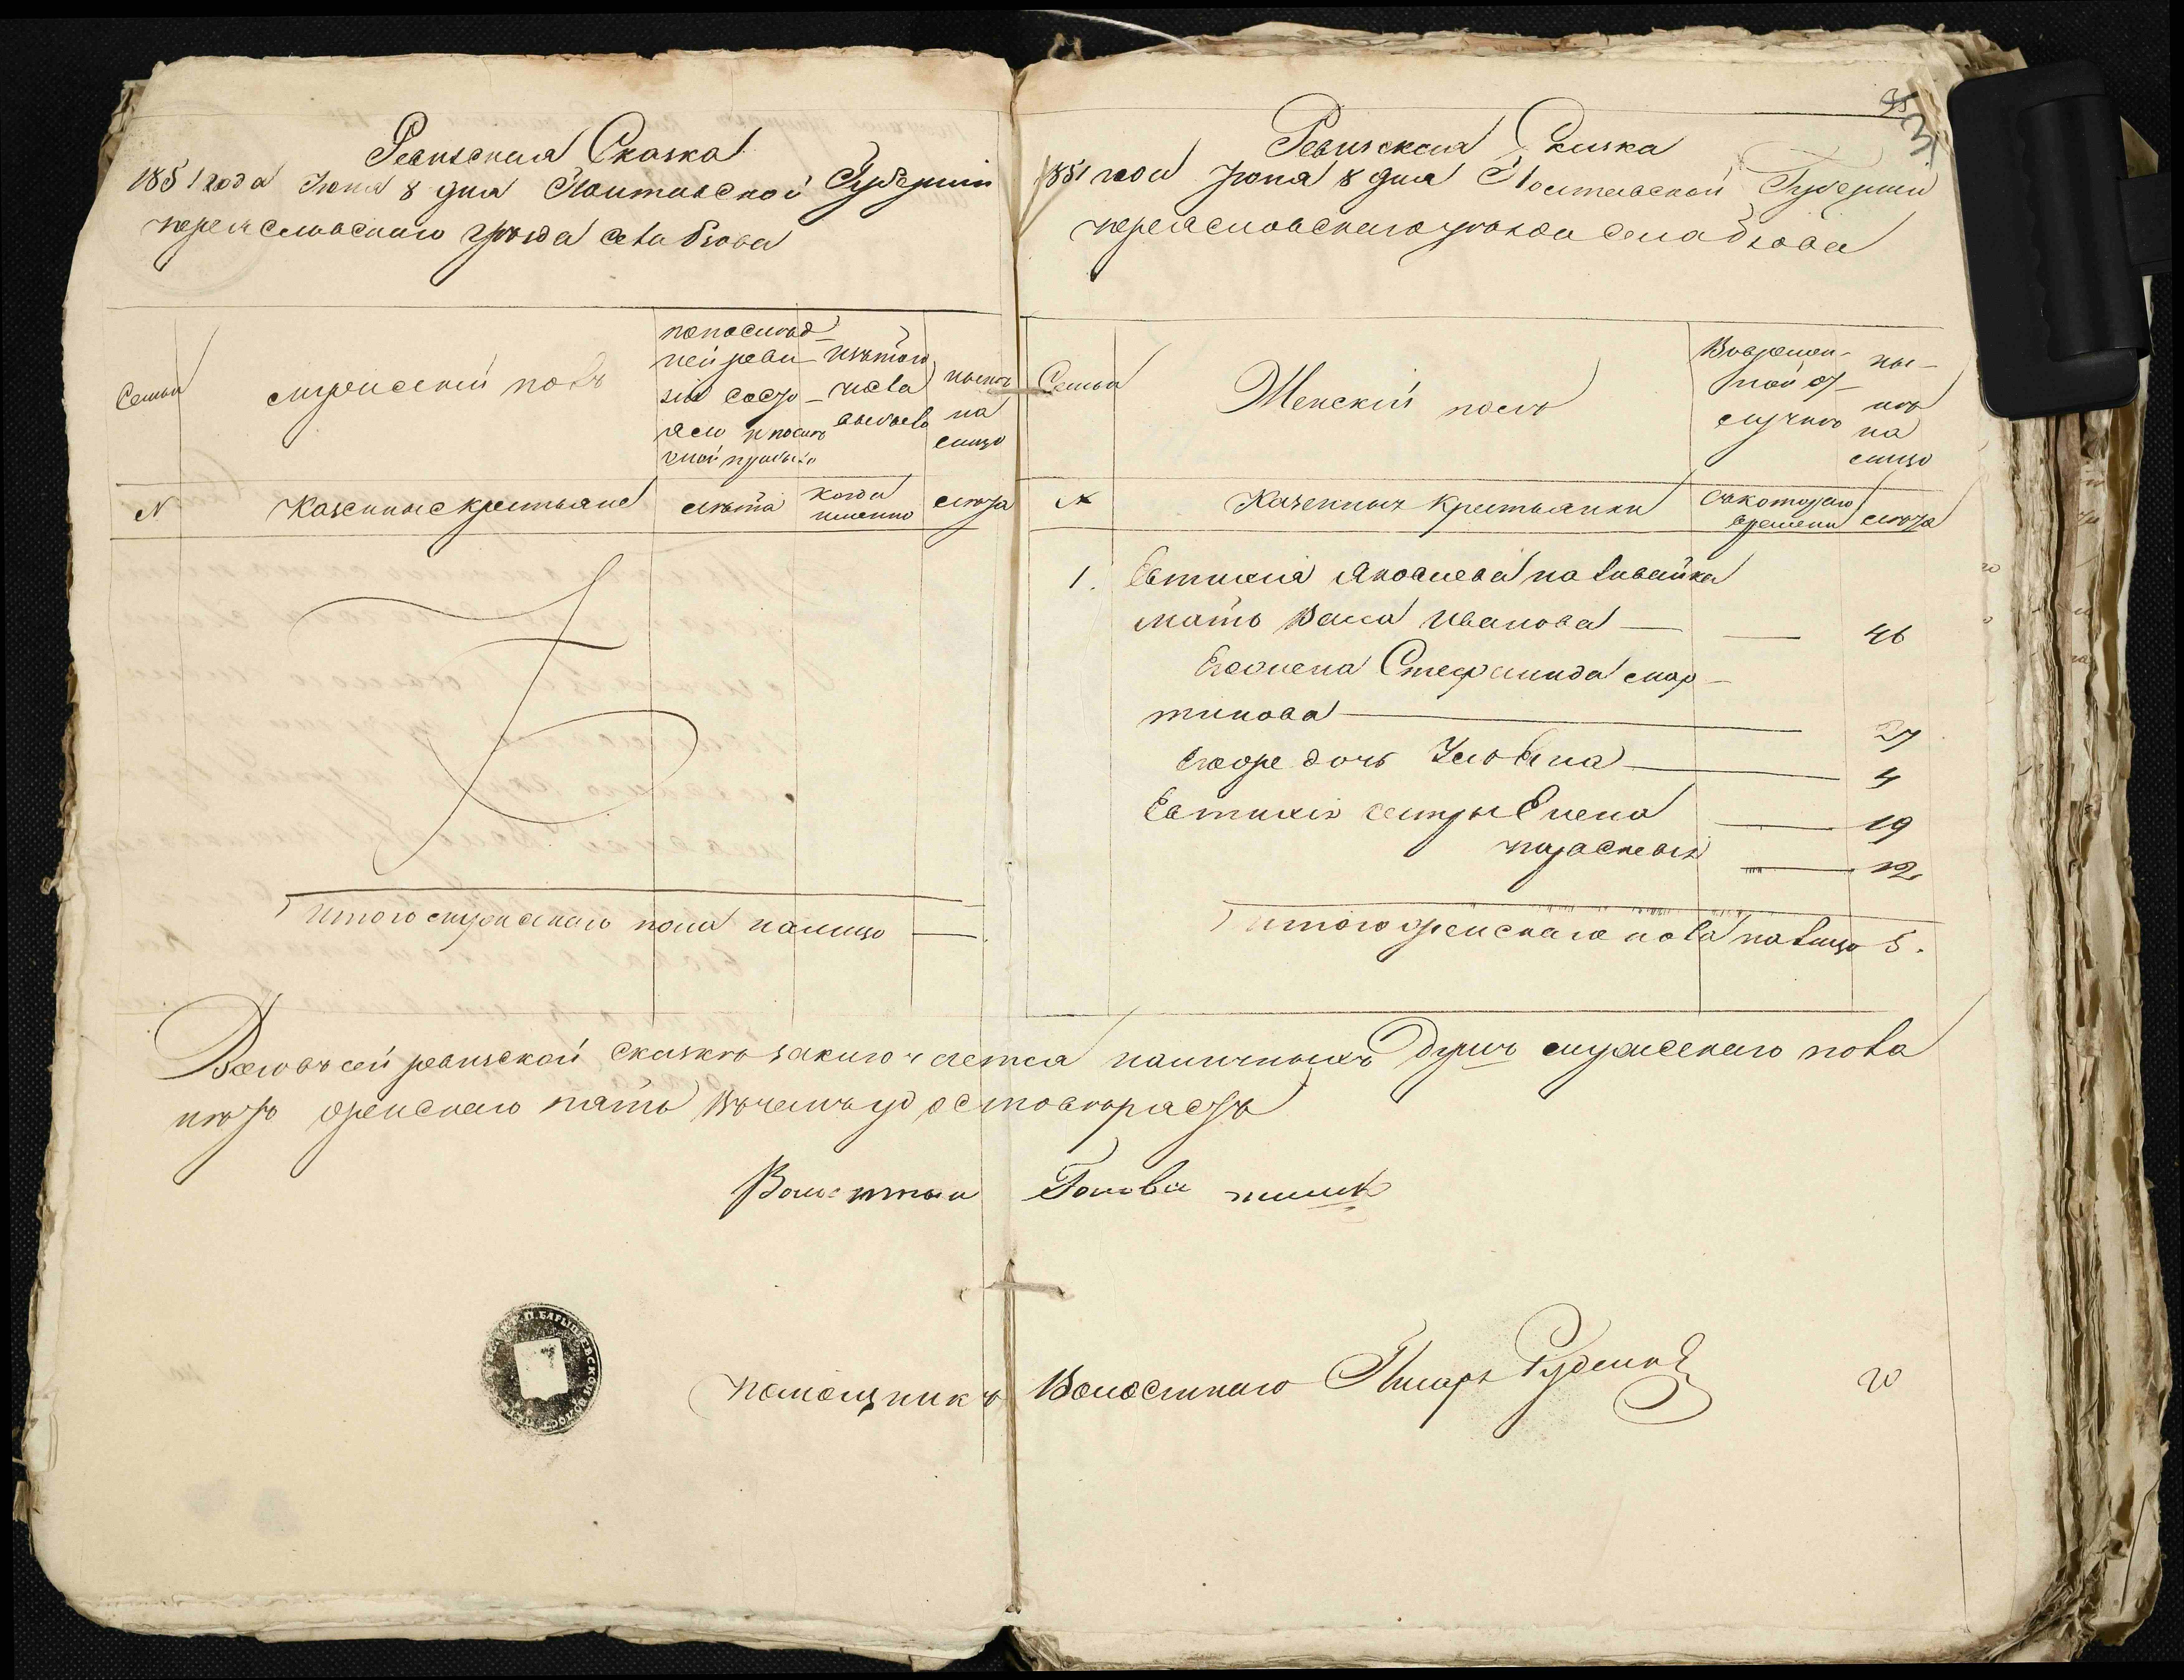 Ревизская Сказка
1851 года Июня 8 дня Полтавской Губернии
переяславского уезда села Бзова
Семьи
мужеский полъ
попослед-
ней реви-
зіи состо-
яло и после
оной прибыло
изътого
числа
выбыло
ныне
на
лицо
N
Казенные крестьяне
лета
когда
именно
лета
Итого мужескаго пола налицо —
Ревизская Сказка
1851 года Июня 8 дня Полтавской Губернии
переяславскаго уезда села Бзова
Семьи
Женскій полъ
Вовремен-
ной от-
лучке
ны-
не
на
лицо
N
Казенныя Крестьянки
съкотораго
времени
лета
1. Евтихия Яковлева Наливайка
мать Васса Иванова — — 46
Егожена Степанида мар-
тинова — 27
Ихъ дочь Ульяна — 4
Евтихія сестры Елена — 19
параскевия — 12
итого женскаго пола налицо 5.
Всего въ сей ревизской сказке заключается наличныхъ Душъ мужескаго пола
нетъ женскаго пять Въчемъ удостоверяетъ
Волостный Голова
Помощникъ Волостнаго Писаря Руденко